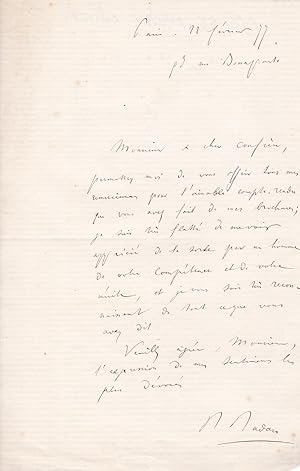 Paris. 11 février 77
rue Bonaparte
Monsieur & cher confrère,
permettez moi de vous offrir tous mes
remerciemens pour l'aimable compte-rendu
que vous avez fait de mes brochures;
je suis très flatté de me voir
apprécié de la sorte par un homme
de votre compétence et de votre
mérite, et je vous suis très recon-
naissant de tout ce que vous
avez dit
Veuillez agréer, Monsieur,
l'expression de mes sentimens les
plus dévoués
R Radau